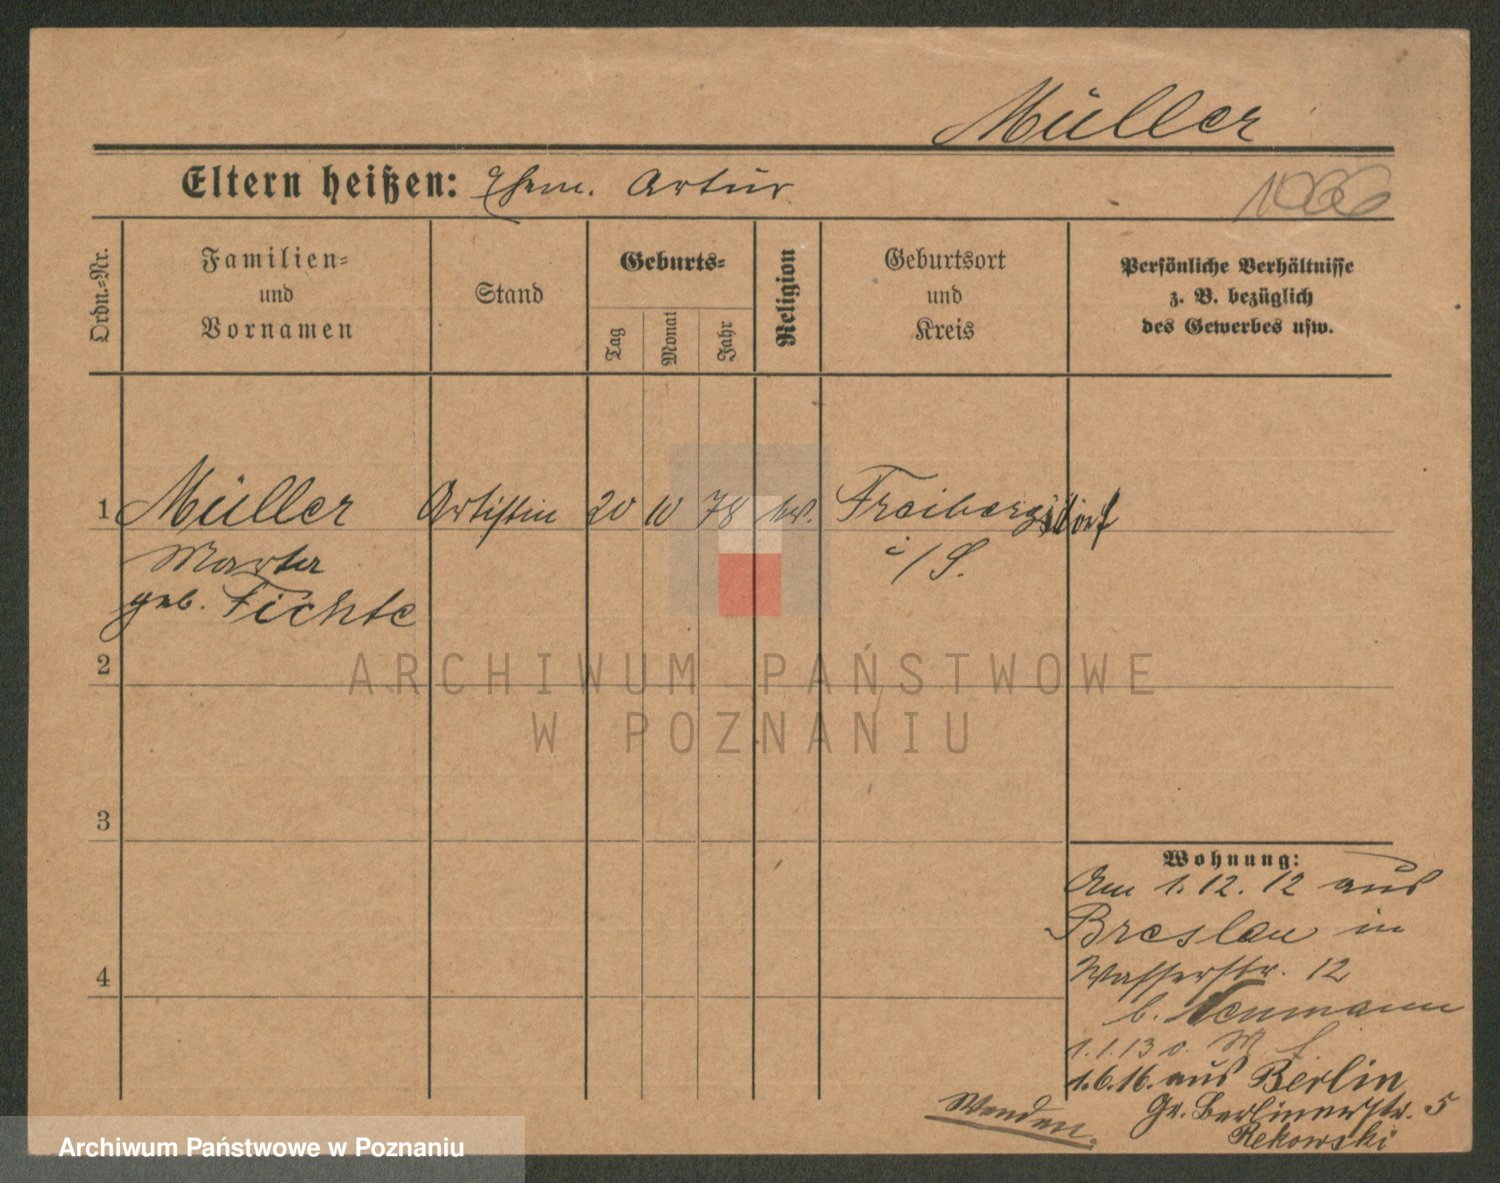 Müller
Eltern heißen: Ehem. Artur
1066
Ordn.-Nr.
Familien-
und
Vornamen
Stand
Geburts-
Tag
Monat
Jahr
Religion
Geburtsort
und
Kreis
Persönliche Verhältnisse
z. B. bezüglich
des Gewerbes usw.
1 Müller Artistin 20 10 78 ev. Freibergsdorf
Marta i/S.
geb. Fichte
2
3
4
Wohnung:
Am 1.12.12 aus
Breslau in
Wasserstr. 12
b. Neumann
1.1.13 v.
1.6.16. aus Berlin
Gr. Berlinerstr. 5
Rekowski
Wenden.
ARCHIWUM PAŃSTWOWE
W POZNANIU
Archiwum Państwowe w Poznaniu